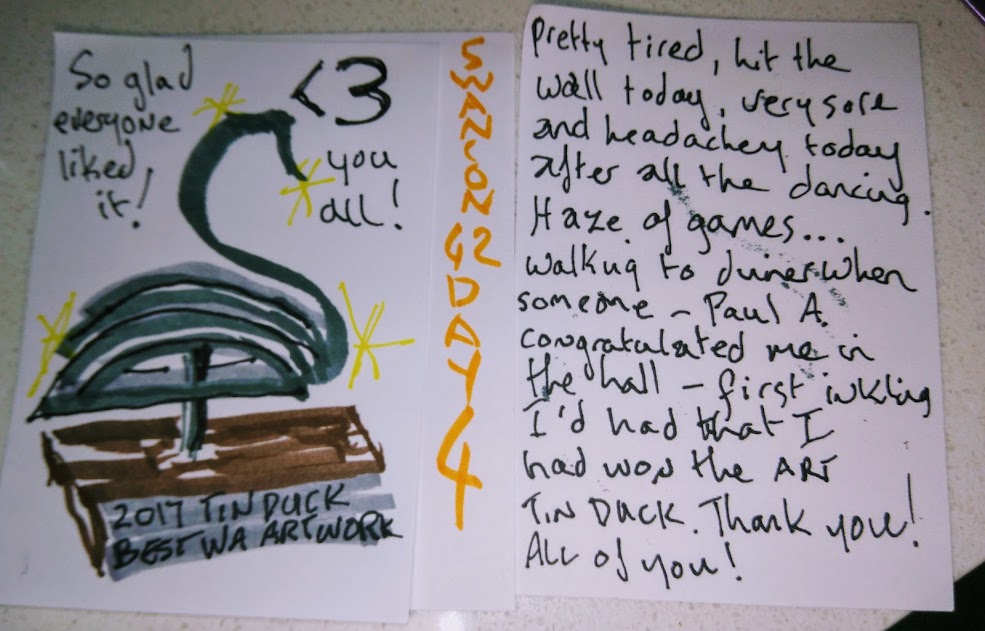 So glad
everyone
liked
it!
<3
you
all!
2017 TIN DUCK
BEST WA ARTWORK
SWANCON 42 DAY 4
Pretty tired, hit the
wall today, very sore
and headachey today
after all the dancing.
Haze of games...
walking to dinner when
someone - Paul A.
congratulated me in
the hall - first inkling
I'd had that I
had won the ART
TIN DUCK. Thank you!
All of you!